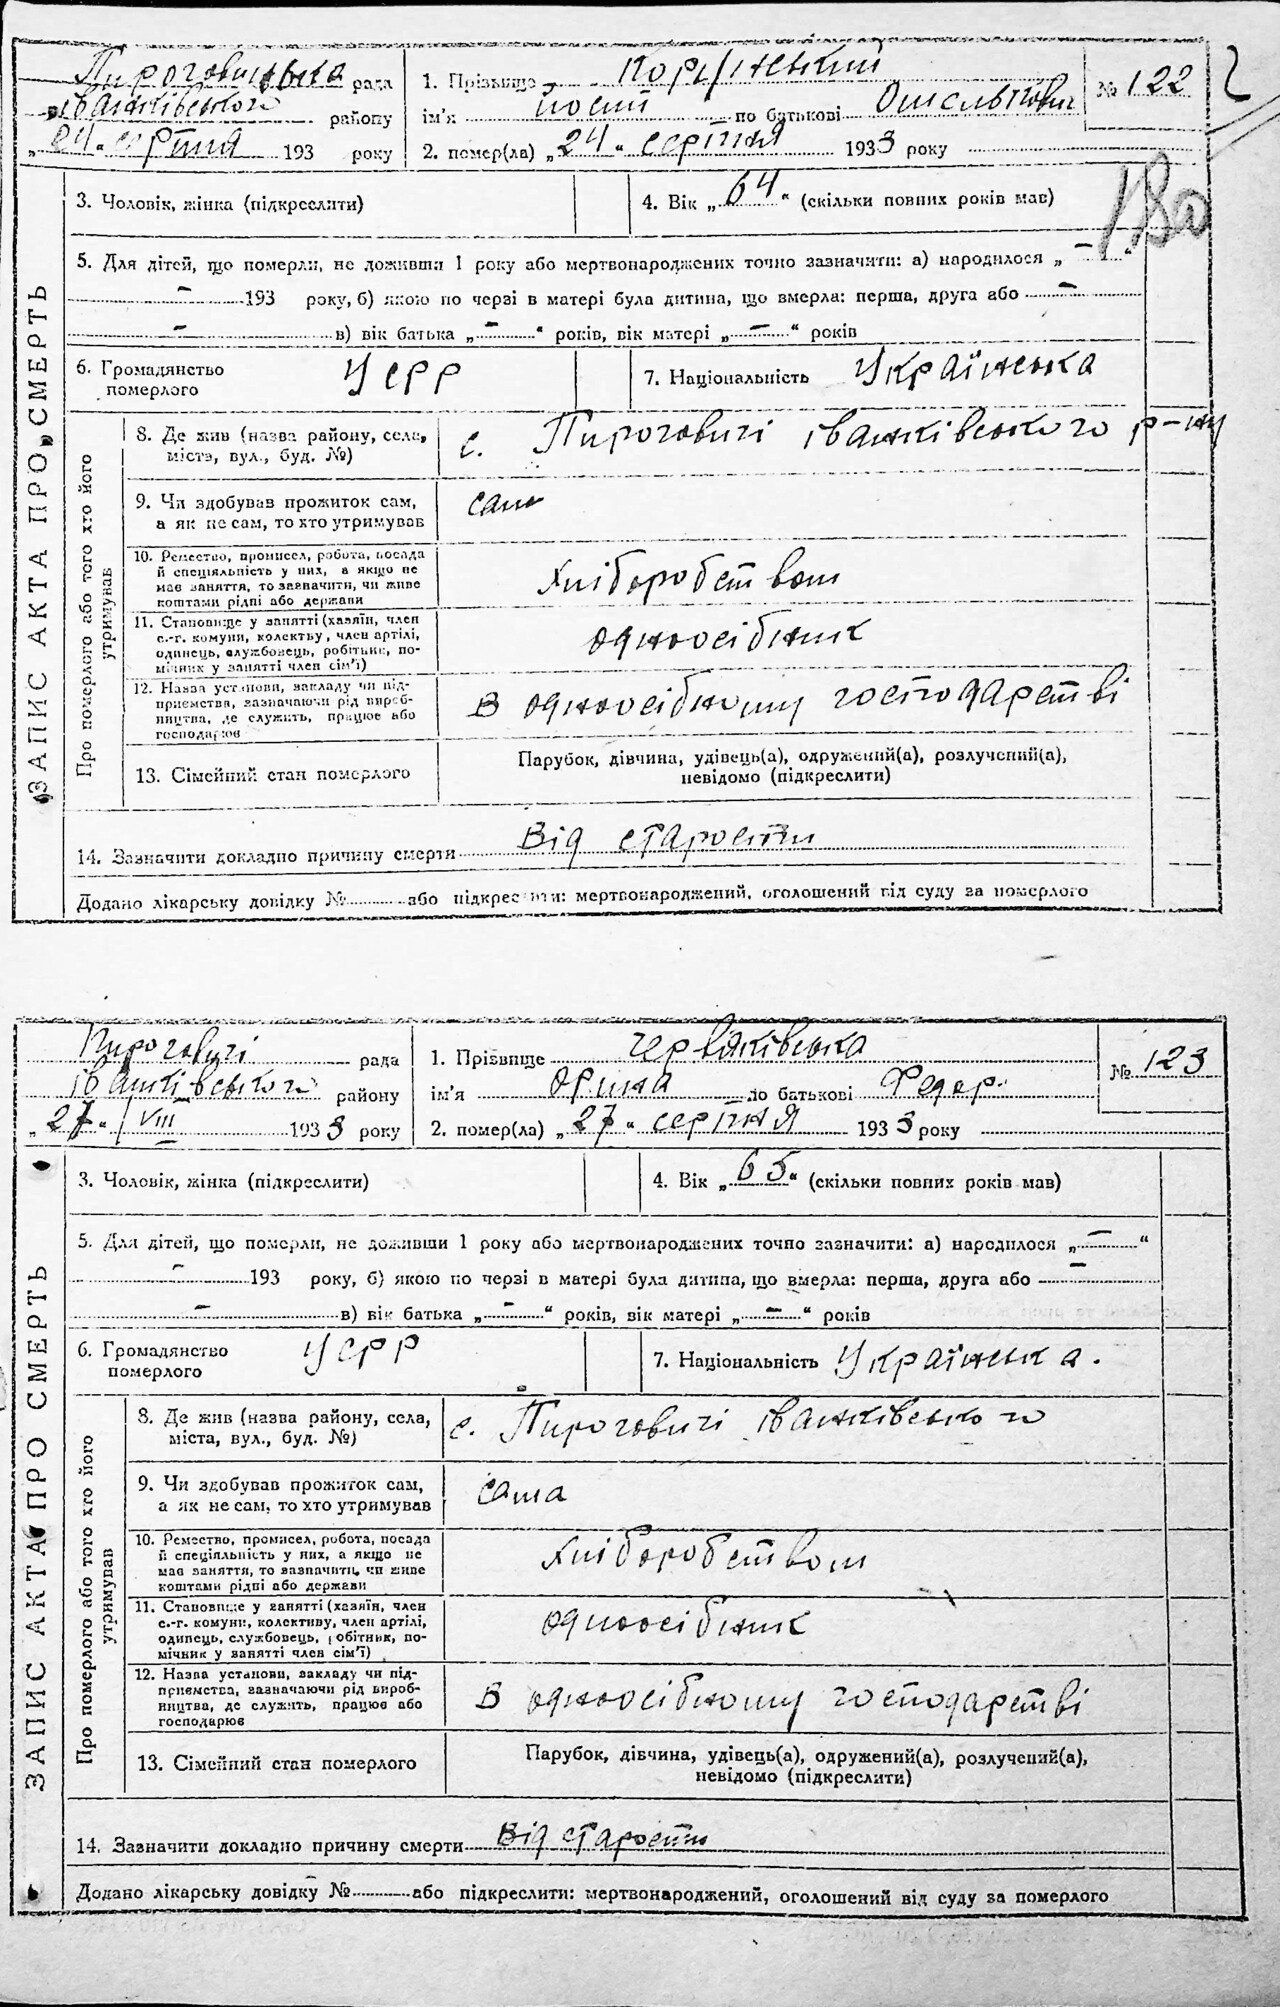 Пироговицька рада
Іванківського району
„24“ серпня 193 року
1. Прізвище
ім'я Йосип по батькові
2. помер(ла) „24“ серпня 1933 року
№ 122
180
3. Чоловік, жінка (підкреслити)
4. Вік „64“ (скільки повних років мав)
5. Для дітей, що померли, не доживши 1 року або мертвонароджених точно зазначити: а) народилося „ — “
— 193 року, б) якою по черзі в матері була дитина, що вмерла: перша, друга або —
— в) вік батька „ — “ років, вік матері „ — “ років
6. Громадянство
померлого
УСРР
7. Національність Українська
ЗАПИС АКТА ПРО СМЕРТЬ
Про померлого або того хто його
утримував
8. Де жив (назва району, села,
міста, вул., буд. №)
с. Пироговичі іванківського р-ну
9. Чи здобував прожиток сам,
а як не сам, то хто утримував
сам
10. Ремество, промисел, робота, посада
й спеціяльність у них, а якщо не
має заняття, то зазначити, чи живе
коштами рідні або держави
Хліборобством
11. Становище у занятті (хазяїн, член
с.-г. комуни, колектву, член артілі,
одинець, службовець, робітник, по-
мічник у занятті член сім'ї)
одноосібник
12. Назва установи, закладу чи під-
приємства, зазначаючи рід вироб-
ництва, де служить, працює або
господарює
В одноосібному господарстві
13. Сімейний стан померлого
Парубок, дівчина, удівець(а), одружений(а), розлучений(а),
невідомо (підкреслити)
14. Зазначити докладно причину смерти Від старости
Додано лікарську довідку № або підкреслити: мертвонароджений, оголошений від суду за померлого
Пироговичі рада
іванківського району
„27“ VIII 1933 року
1. Прізвище Червяківська
ім'я Орина по батькові Федор.
2. помер(ла) „27“ серпня 1933 року
№ 123
3. Чоловік, жінка (підкреслити)
4. Вік „65“ (скільки повних років мав)
5. Для дітей, що померли, не доживши 1 року або мертвонароджених точно зазначити: а) народилося „ — “
— 193 року, б) якою по черзі в матері була дитина, що вмерла: перша, друга або —
— в) вік батька „ — “ років, вік матері „ — “ років
6. Громадянство
померлого
УСРР
7. Національність Українська.
ЗАПИС АКТА ПРО СМЕРТЬ
Про померлого або того хто його
утримував
8. Де жив (назва району, села,
міста, вул., буд. №)
с. Пироговичі іванківського
9. Чи здобував прожиток сам,
а як не сам, то хто утримував
сама
10. Ремество, промисел, робота, посада
й спеціяльність у них, а якщо не
має заняття, то зазначити, чи живе
коштами рідні або держави
Хліборобством
11. Становище у занятті (хазяїн, член
с.-г. комуни, колективу, член артілі,
одинець, службовець, робітник, по-
мічник у занятті член сім'ї)
одноосібник
12. Назва установи, закладу чи під-
приємства, зазначаючи рід вироб-
ництва, де служить, працює або
господарює
В одноосібному господарстві
13. Сімейний стан померлого
Парубок, дівчина, удівець(а), одружений(а), розлучений(а),
невідомо (підкреслити)
14. Зазначити докладно причину смерти Від старости
Додано лікарську довідку № або підкреслити: мертвонароджений, оголошений від суду за померлого